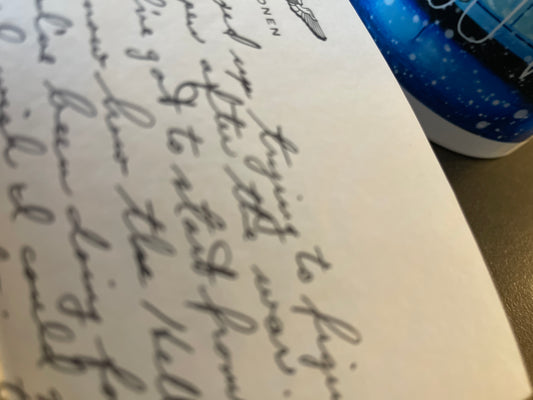 ONEN
up trying to figu
after the war.
I've got to start from
now how the Hell
I've been doing fo
wish I could